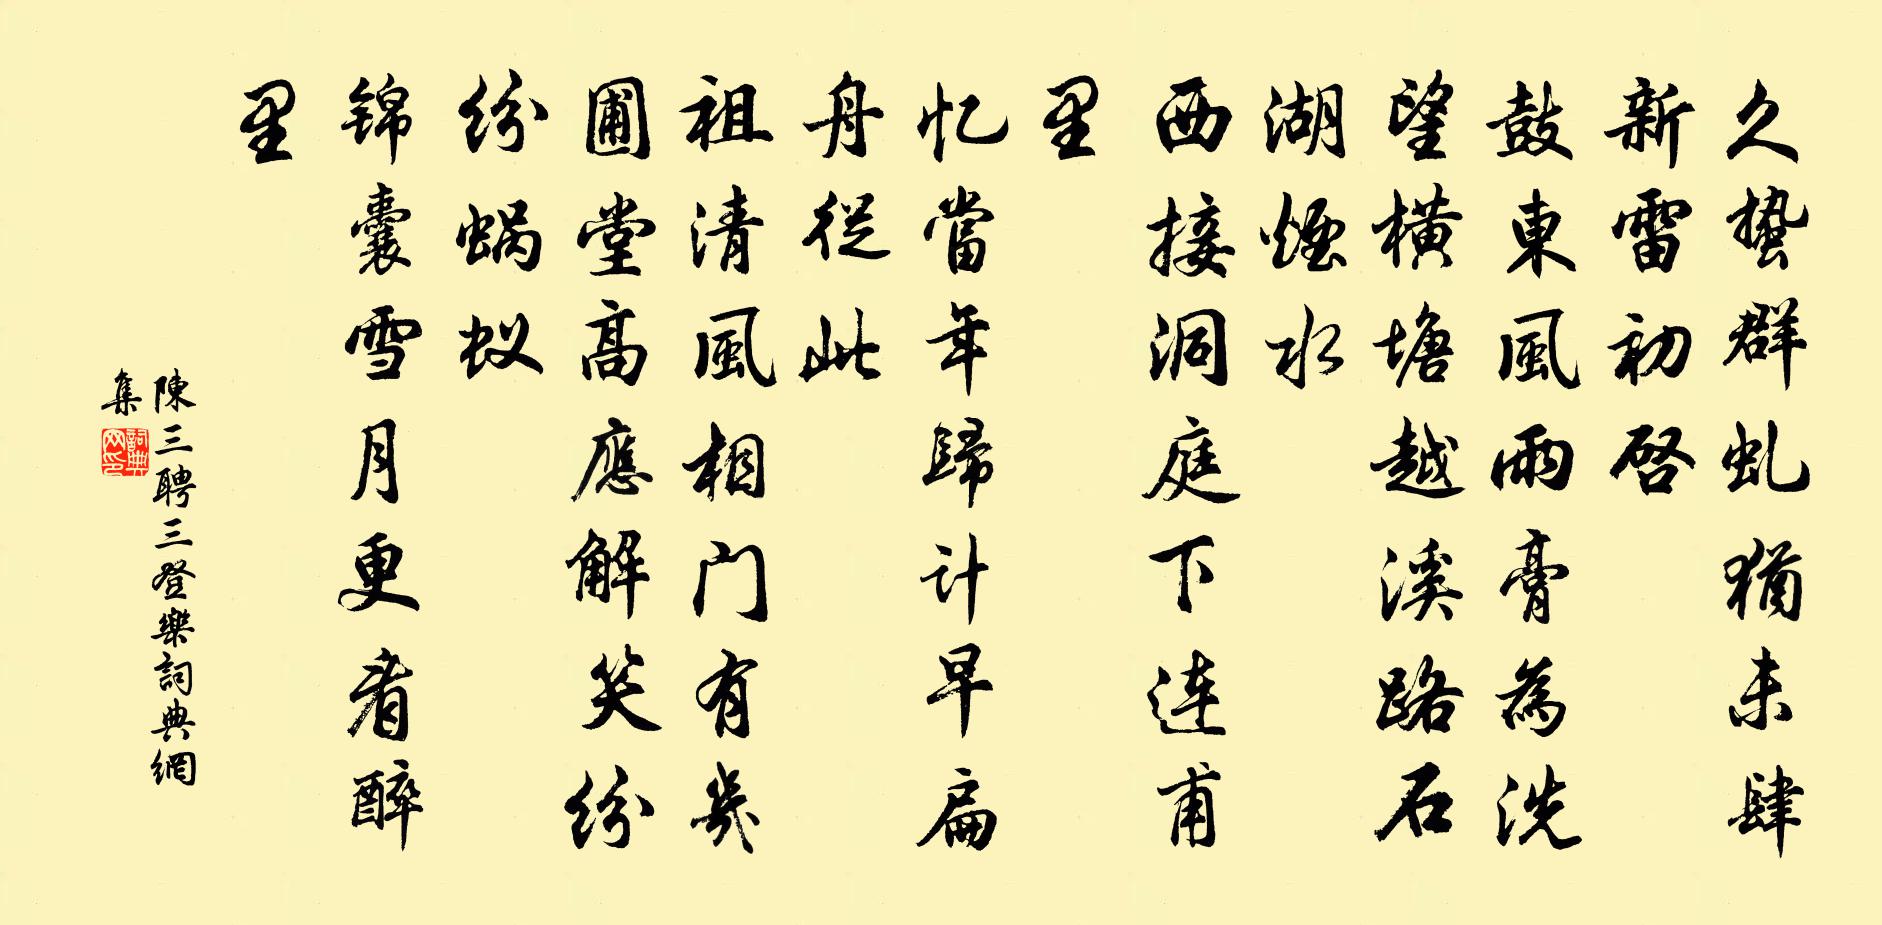 久蛰群虬猶未肆
新雷初啓
鼓東風雨膏為洗
望横塘越溪路石
湖煙水
西接洞庭下連甫
里
忆當年歸计早扁
舟從此
祖清風相门有幾
圃堂高應解笑纷
纷蜗蚁
锦囊雪月更看醉
里
陳三聘三登樂詞典網
集
詞典网印